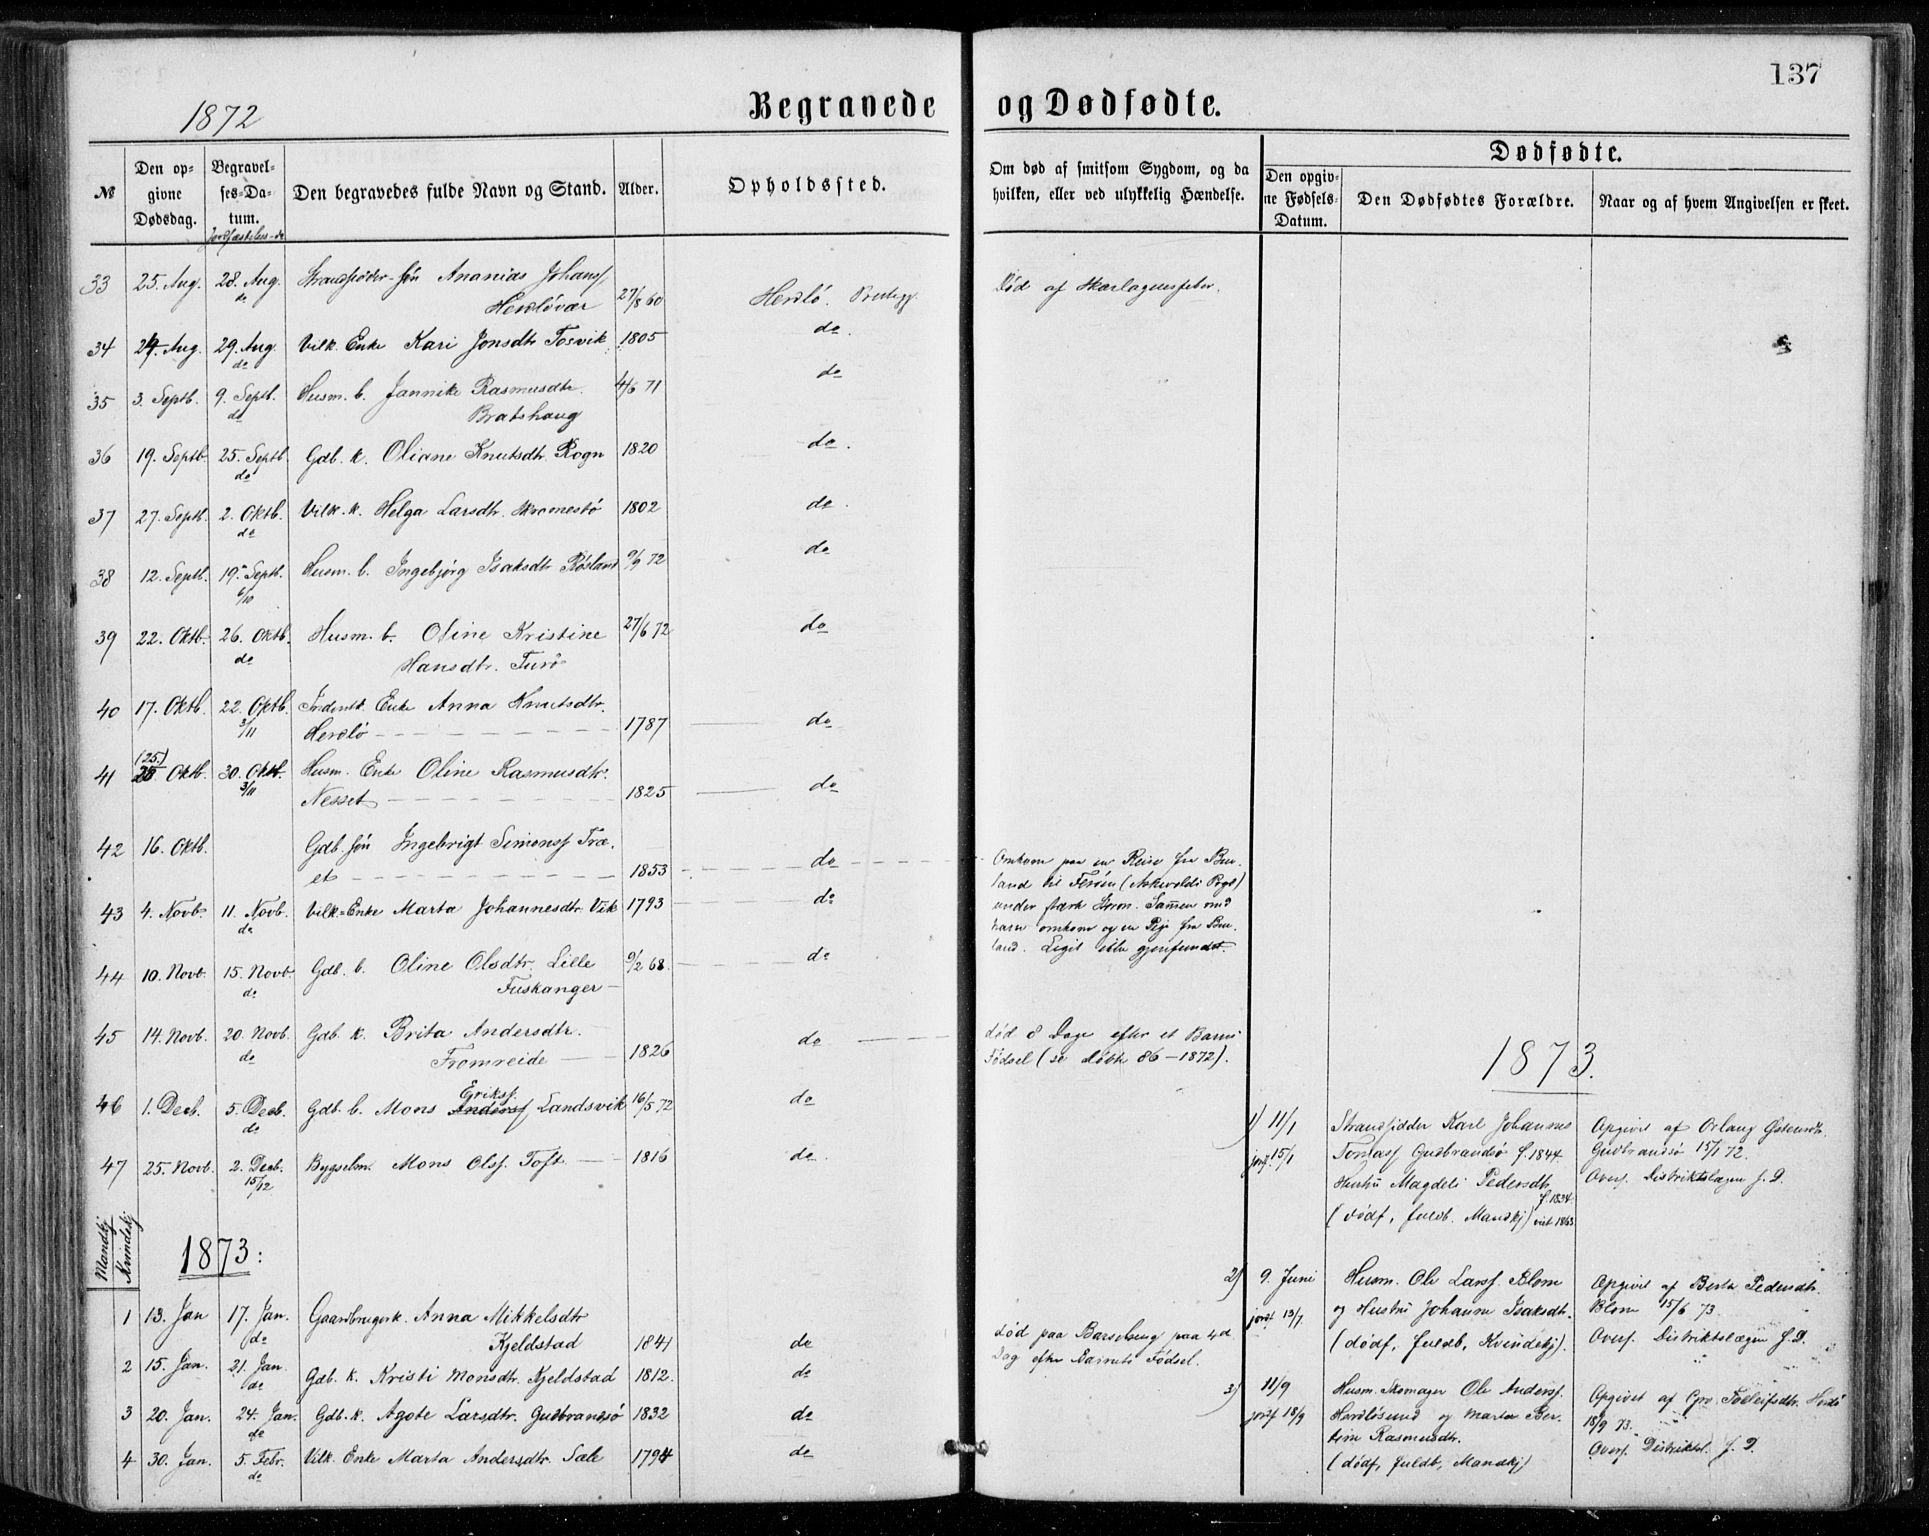 137
1872
Begravede og Dødfødte.
№
Den opgivne Dødsdag.
Begravelses-Datum.
Jordfæstelses-do
Den begravedes fulde Navn og Stand.
Alder.
Opholdssted.
Om død af smitsom Sygdom, og da hvilken, eller ved ulykkelig Hændelse.
Dødfødte.
Den opgivne Fødsels-Datum.
Den Dødfødtes Forældre.
Naar og af hvem Angivelsen er skeet.
33 25. Aug. 28. Aug. Strandsidder-søn Ananias Johans. 27/8 60 Herdlø. Prestegj. Død af Skarlagensfeber.
do Herdløvær
34 24. Aug. 29. Aug. Vilk. Enke Kari Jonsdtr Tosvik 1805 do.
do
35 3. Septb. 9. Septb. Husm. b. Jannike Rasmusdtr. 4/6 71 do
do Bratshaug
36 19. Septb 25. Septb. Gdb. k. Oliane Knutsdtr. Rogn 1820 do.
do
37 27. Septb. 2. Oktb. Vilk. k. Helga Larsdtr. Skromestø 1802 do.
do
38 12. Septb. 19. Septb. Husm. b. Ingebjørg Isaksdtr Røsland 9/9 72 do
6/10
39 22. Oktb. 26. Oktb. Husm. b. Oline Kristine 27/6 72 do
do Hansdtr. Turø
40 17. Oktb. 22. Oktb. Enke Anna Knutsdtr.
3/11 Herdlø 1787 do
(25.)
41 28 Oktb. 30. Oktb. Husm. Enke Oline Rasmusdtr.
3/11 Nesset 1825 do
42 16. Oktb. Gdb. søn Ingebrigt Simonss. Træ-
et 1853 do
Omkom paa en Reise fra Bu-
land til Ferøen (Askvolds Pgd)
under stærk Storm. Sammen med
ham omkom og en Pige fra Bu-
land. Liget ikke gjenfundet.
43 4. Novb. 11. Novb. Vilk-Enke Marta Johannesdtr. Vik 1793 do
do
44 10. Novb. 15. Novb. Gdb. b. Oline Olsdtr. Lille 9/2 68. do
do Fuskanger
45 14. Novb. 20. Novb. Gdb. k. Brita Andersdtr.
do Fromreide 1826 do
død 8 Dage efter et Barns
Fødsel (se døbte 86-1872).
46 1. Decb. 5. Decb. Gdb. b. Mons Erikss. Anderss Landsvik 16/5 72 do
do
47 25. Novb. 2. Decb. Bygselm. Mons Olss. Toft 1816 do.
15/12
Mandkj
Kvindekj
1873:
1 13. Jan 17. Jan. Gaardbrugerk. Anna Mikkelsdtr
do Kjeldstad 1841 do
død paa Barselseng paa 4d
Dag efter Barnets Fødsel.
2 15. Jan. 21. Jan. Gdb. k. Kristi Monsdtr. Kjeldstad 1812. do
do
3 20. Jan. 24. Jan. Gdb. k. Agote Larsdtr. Gudbrandsø 1832 do
do
4 30. Jan. 5. Febr. Vilk. Enke Marta Andersdtr. Sale 1794 do
do
1873.
1) 11/1 Strandsidder Karl Johannes
jordf. 15/1 Tomass. Gudbrandsø f. 1844.
Hustru Magdeli Pedersdtr. f. 1834.
(dødf, fuldb. Mandkj) viet 1863.
Opgivet af Orlaug Østensdtr.
Gudbrandsø 15/1 72.
Overs. Distriktslægen J. D.
2) 9. Juni Husm. Ole Larss. Blom
jordf 13/7 og Hustru Johanne Isaksdtr.
(dødf, fuldb, Kvindekj).
Opgivet af Berta Pedersdtr.
Blom 15/6 73.
Overs. Distriktslægen J. D.
3) 11/9 Husm. Skomager Ole Anderss.
jordf 18/9 Herdløsund og Marta Ber-
tine Rasmusdtr.
(dødf, fuldb, Mandkj)
Opgivet af Gro Tolleifsdtr. Herdlø
18/9 73.
Overs. Distriktsl. J. D.